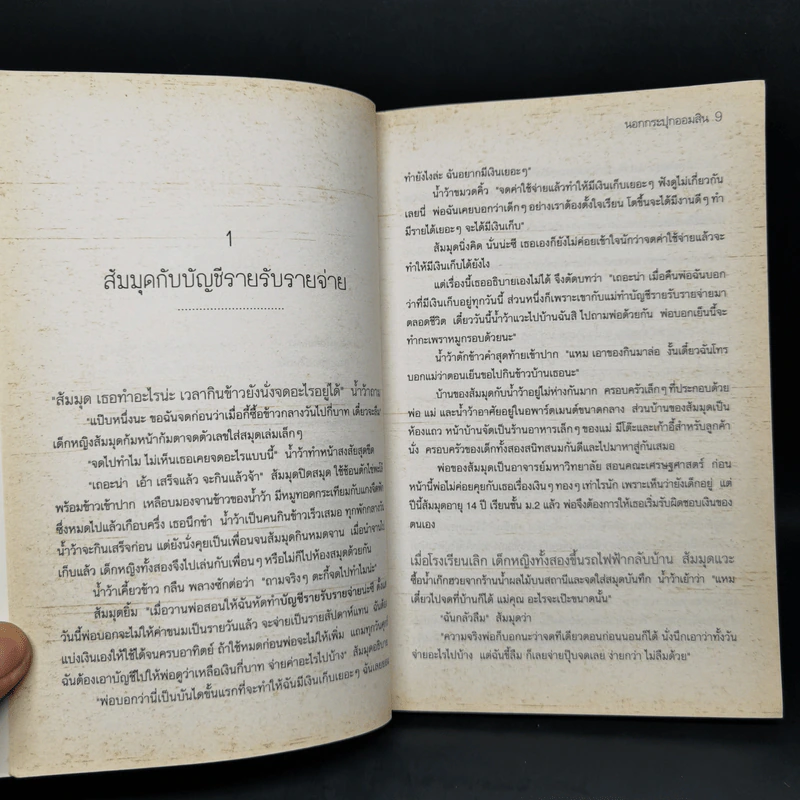 1
ส้มมุดกับบัญชีรายรับรายจ่าย
"ส้มมุด เธอทำอะไรน่ะ เวลากินข้าวยังนั่งจดอะไรอยู่ได้" น้ำว้าถาม
"แป๊บหนึ่งนะ ขอฉันจดก่อนว่าเมื่อกี้ซื้อข้าวกลางวันไปกี่บาท เดี๋ยวจะลืม"
เด็กหญิงส้มมุดก้มหน้าก้มตาจดตัวเลขใส่สมุดเล่มเล็กๆ
"จดไปทำไม ไม่เห็นเธอเคยจดอะไรแบบนี้" น้ำว้าทำหน้าสงสัยสุดขีด
"เถอะน่า เอ้า เสร็จแล้ว จะกินแล้วจ้า" ส้มมุดปิดสมุด ใช้ช้อนตักไข่พะโล้
พร้อมข้าวเข้าปาก เหลือบมองจานข้าวของน้ำว้า มีหมูทอดกระเทียมกับแกงจืดผัก
ซึ่งหมดไปแล้วเกือบครึ่ง เธอนึกขำ น้ำว้าเป็นคนกินข้าวเร็วเสมอ ทุกพักกลางวัน
น้ำว้าจะกินเสร็จก่อน แต่ยังนั่งคุยเป็นเพื่อนจนส้มมุดกินหมดจาน เมื่อนำจานไป
เก็บแล้ว เด็กหญิงทั้งสองจึงไปเล่นกับเพื่อนๆ หรือไม่ก็ไปห้องสมุดด้วยกัน
น้ำว้าเคี้ยวข้าว กลืน พลางซักต่อว่า "ถามจริงๆ ตะกี้จดไปทำไมน่ะ"
ส้มมุดยิ้ม "เมื่อวานพ่อสอนให้ฉันหัดทำบัญชีรายรับรายจ่ายน่ะซี ตั้งแต่
วันนี้พ่อบอกจะไม่ให้ค่าขนมเป็นรายวันแล้ว จะจ่ายเป็นรายสัปดาห์แทน ฉันต้อง
แบ่งเงินเองให้ใช้ได้จนครบอาทิตย์ ถ้าใช้หมดก่อนพ่อจะไม่ให้เพิ่ม แถมทุกวันศุกร์
ฉันต้องเอาบัญชีไปให้พ่อดูว่าเหลือเงินกี่บาท จ่ายค่าอะไรไปบ้าง" ส้มมุดอธิบาย
"พ่อบอกว่านี่เป็นบันไดขั้นแรกที่จะทำให้ฉันมีเงินเก็บเยอะๆ ฉันเลย
นอกกระปุกออมสิน 9
ทำยังไงล่ะ ฉันอยากมีเงินเยอะๆ"
น้ำว้าขมวดคิ้ว "จดค่าใช้จ่ายแล้วทำให้มีเงินเก็บเยอะๆ ฟังดูไม่เกี่ยวกัน
เลยนี่ พ่อฉันเคยบอกว่าเด็กๆ อย่างเราต้องตั้งใจเรียน โตขึ้นจะได้มีงานดีๆ ทำ
มีรายได้เยอะๆ จะได้มีเงินเก็บ"
ส้มมุดนิ่งคิด นั่นน่ะซี เธอเองก็ยังไม่ค่อยเข้าใจนักว่าจดค่าใช้จ่ายแล้วจะ
ทำให้มีเงินเก็บได้ยังไง
แต่เรื่องนี้เธออธิบายเองไม่ได้ จึงตัดบทว่า "เถอะน่า เมื่อคืนพ่อฉันบอก
ว่าที่มีเงินเก็บอยู่ทุกวันนี้ ส่วนหนึ่งก็เพราะเขากับแม่ทำบัญชีรายรับรายจ่ายมา
ตลอดชีวิต เดี๋ยววันนี้น้ำว้าแวะไปบ้านฉันสิ ไปถามพ่อด้วยกัน พ่อบอกเย็นนี้จะ
ทำกะเพราหมูกรอบด้วยนะ"
น้ำว้าตักข้าวคำสุดท้ายเข้าปาก "แหม เอาของกินมาล่อ งั้นเดี๋ยวฉันโทร
บอกแม่ว่าตอนเย็นขอไปกินข้าวบ้านเธอนะ"
บ้านของส้มมุดกับน้ำว้าอยู่ไม่ห่างกันมาก ครอบครัวเล็กๆ ที่ประกอบด้วย
พ่อ แม่ และน้ำว้าอาศัยอยู่ในอพาร์ตเมนต์ขนาดกลาง ส่วนบ้านของส้มมุดเป็น
ห้องแถว หน้าบ้านจัดเป็นร้านอาหารเล็กๆ ของแม่ มีโต๊ะและเก้าอี้สำหรับลูกค้า
นั่ง ครอบครัวของเด็กทั้งสองสนิทสนมกันดีและไปมาหาสู่กันเสมอ
พ่อของส้มมุดเป็นอาจารย์มหาวิทยาลัย สอนคณะเศรษฐศาสตร์ ก่อน
หน้านี้พ่อไม่ค่อยคุยกับเธอเรื่องเงินๆ ทองๆ เท่าไรนัก เพราะเห็นว่ายังเด็กอยู่ แต่
ปีนี้ส้มมุดอายุ 14 ปี เรียนชั้น ม.2 แล้ว พ่อจึงต้องการให้เธอเริ่มรับผิดชอบเงินของ
ตนเอง
เมื่อโรงเรียนเลิก เด็กหญิงทั้งสองขึ้นรถไฟฟ้ากลับบ้าน ส้มมุดแวะ
ซื้อน้ำเก๊กฮวยจากร้านน้ำผลไม้บนสถานีและจดใส่สมุดบันทึก น้ำว้าเย้าว่า "แหม
เดี๋ยวไปจดที่บ้านก็ได้ แม่คุณ อะไรจะเป๊ะขนาดนั้น"
"ฉันกลัวลืม" ส้มมุดว่า
"ความจริงพ่อก็บอกนะว่าจดทีเดียวตอนก่อนนอนก็ได้ นั่งนึกเอาว่าทั้งวัน
จ่ายอะไรไปบ้าง แต่ฉันขี้ลืม ก็เลยจ่ายปุ๊บจดเลย ง่ายกว่า ไม่ลืมด้วย"